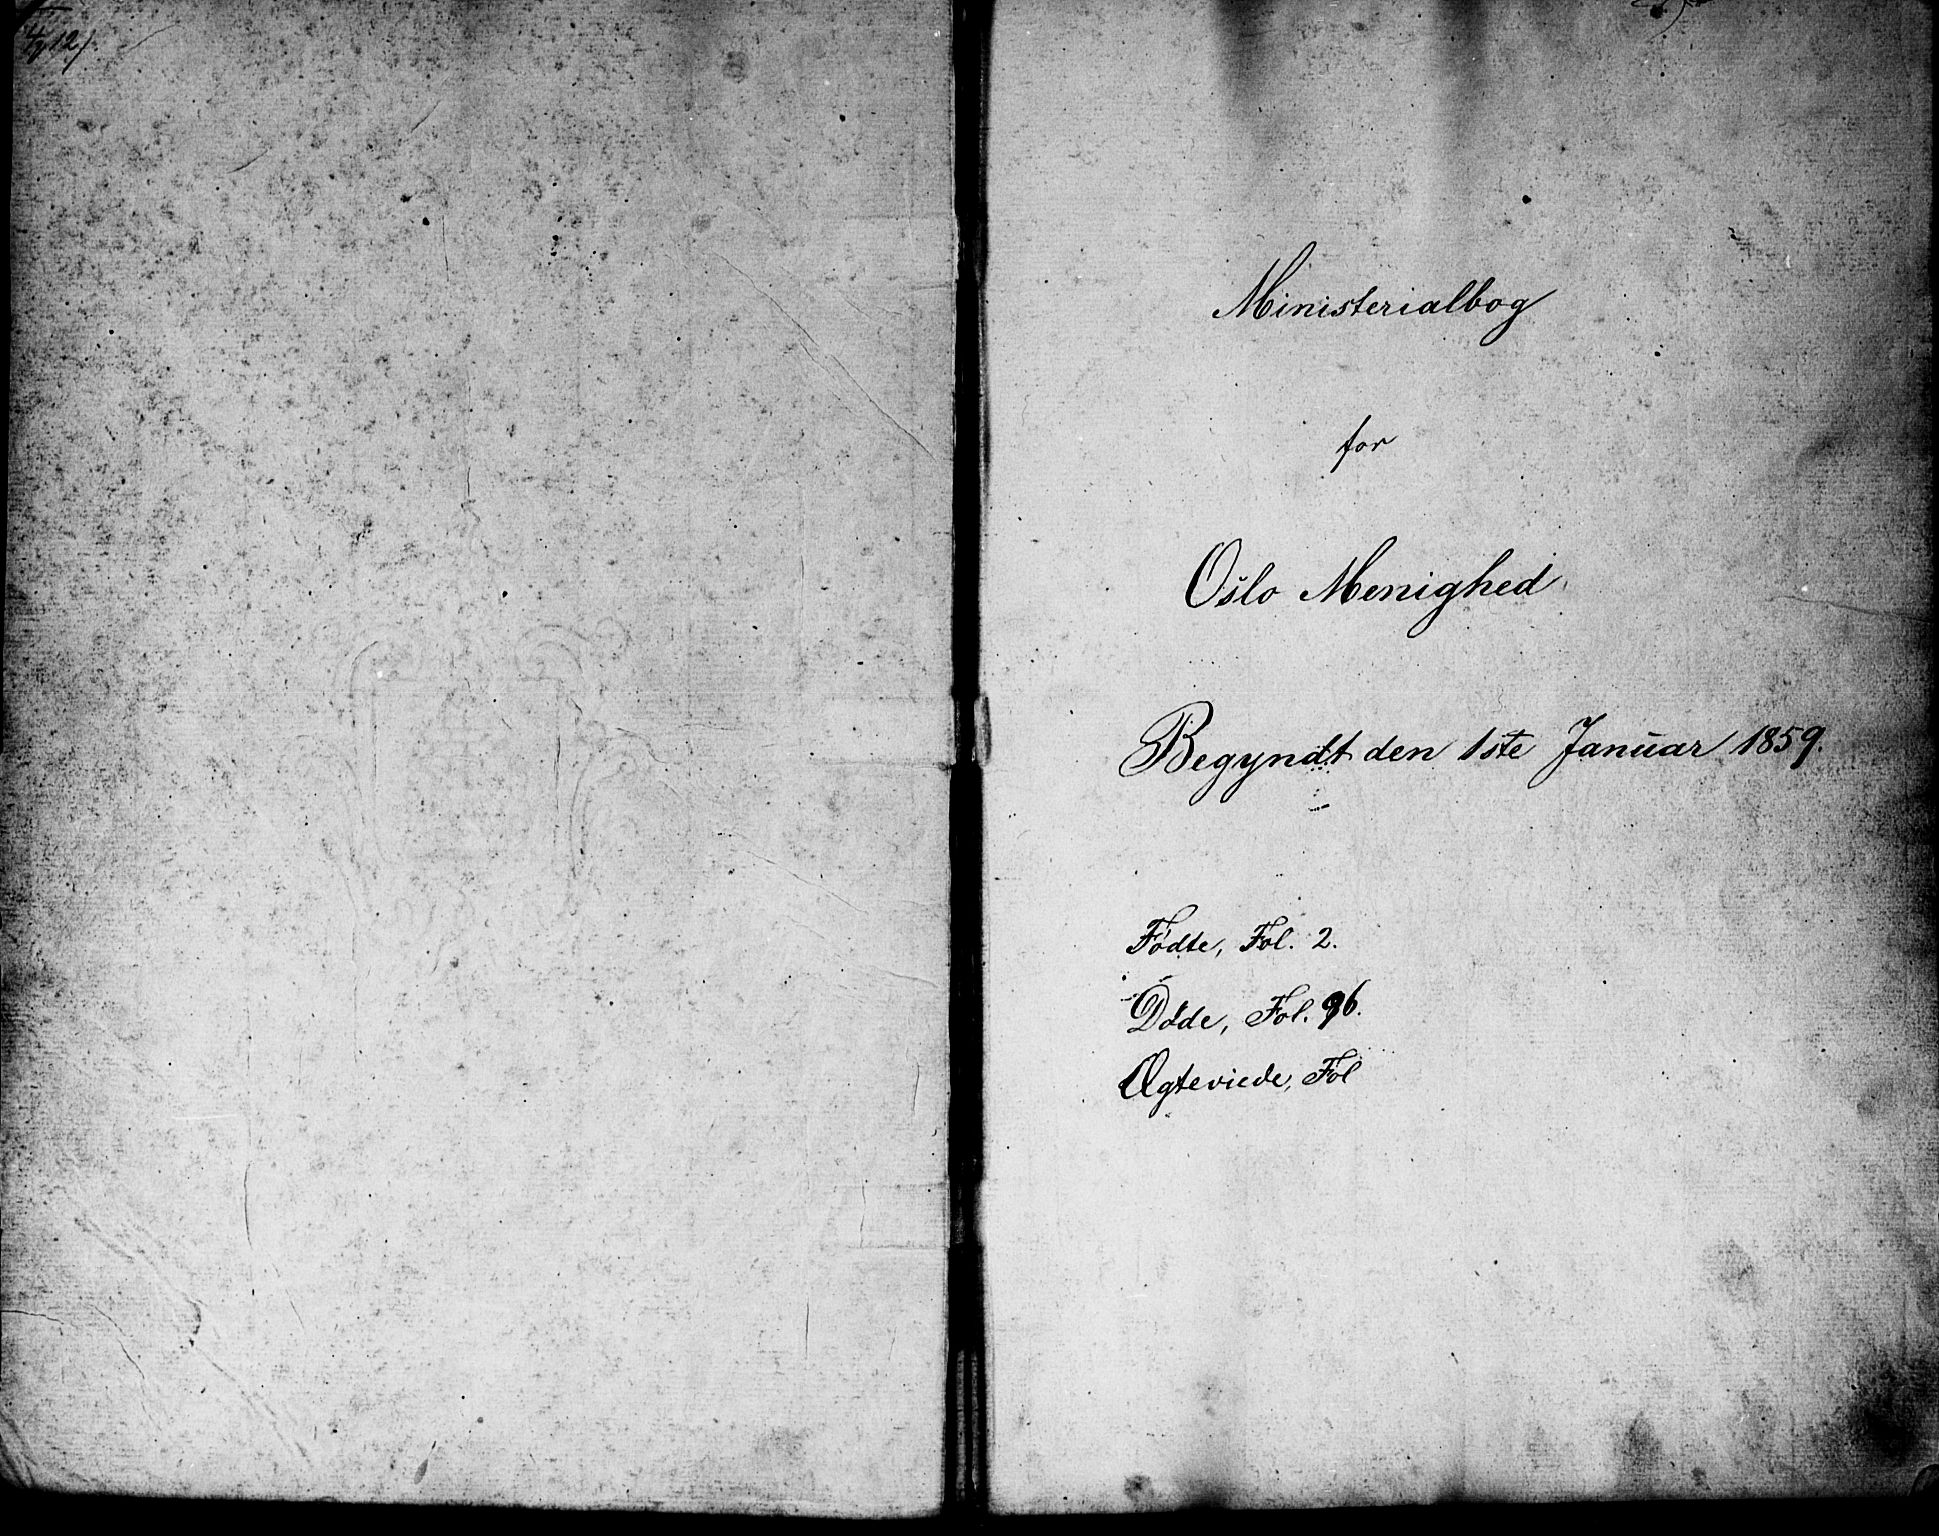 Ministerialbog
for
Oslo Menighed
Begyndt den 1ste Januar 1859.
Fødte, Fol. 2.
Døde, Fol. 96.
Ægteviede, Fol